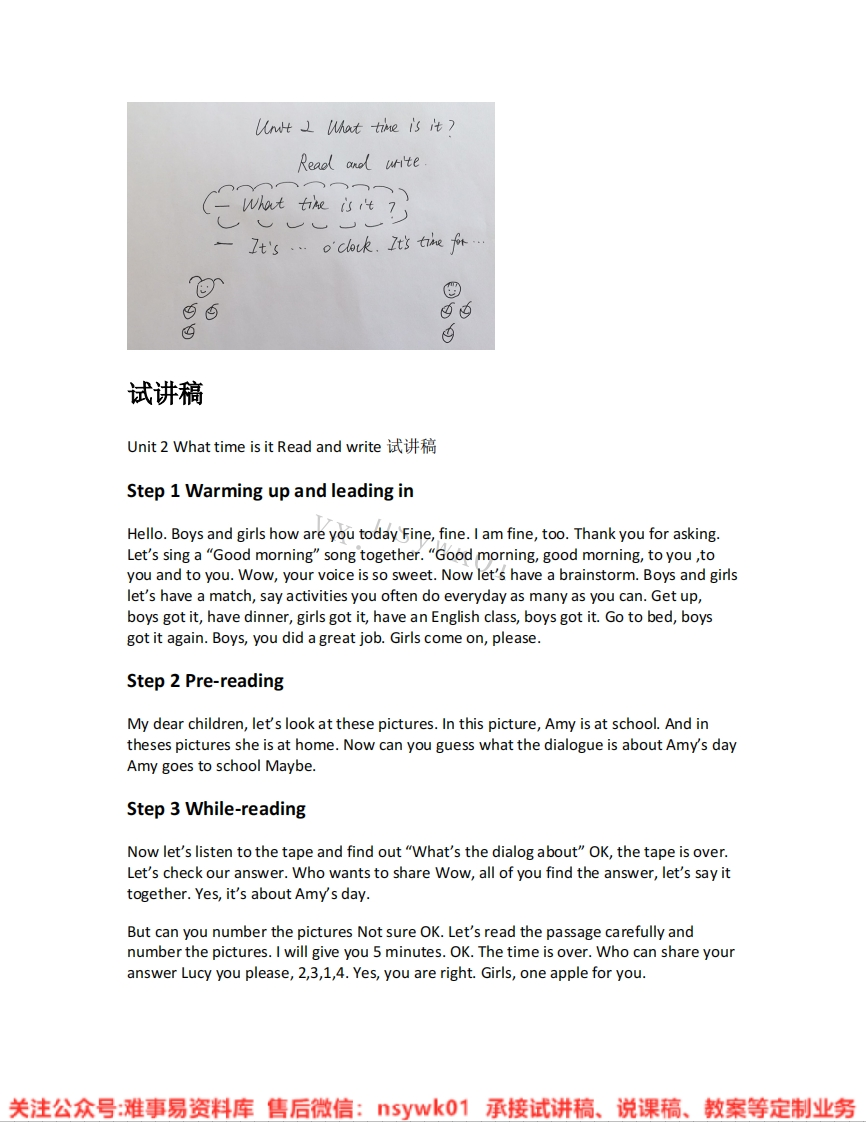 Unit 2 What time is it?
Read and write.
— What time is it?
— It's ... o'clock. It's time for ...
试讲稿
Unit 2 What time is it Read and write 试讲稿
Step 1 Warming up and leading in
Hello. Boys and girls how are you today Fine, fine. I am fine, too. Thank you for asking.
Let’s sing a “Good morning” song together. “Good morning, good morning, to you ,to
you and to you. Wow, your voice is so sweet. Now let’s have a brainstorm. Boys and girls
let’s have a match, say activities you often do everyday as many as you can. Get up,
boys got it, have dinner, girls got it, have an English class, boys got it. Go to bed, boys
got it again. Boys, you did a great job. Girls come on, please.
Step 2 Pre-reading
My dear children, let’s look at these pictures. In this picture, Amy is at school. And in
theses pictures she is at home. Now can you guess what the dialogue is about Amy’s day
Amy goes to school Maybe.
Step 3 While-reading
Now let’s listen to the tape and find out “What’s the dialog about” OK, the tape is over.
Let’s check our answer. Who wants to share Wow, all of you find the answer, let’s say it
together. Yes, it’s about Amy’s day.
But can you number the pictures Not sure OK. Let’s read the passage carefully and
number the pictures. I will give you 5 minutes. OK. The time is over. Who can share your
answer Lucy you please, 2,3,1,4. Yes, you are right. Girls, one apple for you.
关注公众号:难事易资料库 售后微信：nsywk01 承接试讲稿、说课稿、教案等定制业务